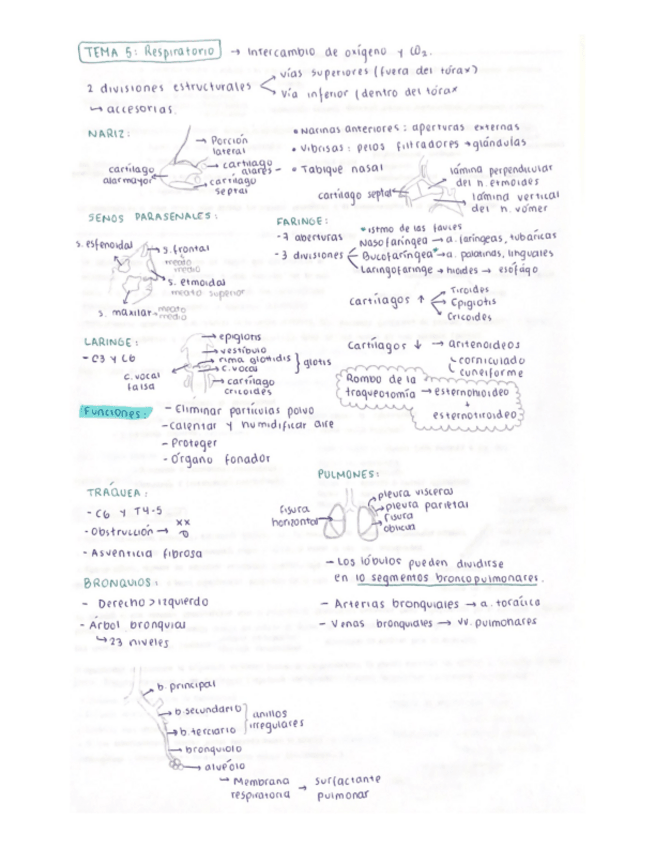 TEMA 5: Respiratorio → Intercambio de oxígeno y CO2.
2 divisiones estructurales
vías superiores (fuera del tórax)
vía inferior (dentro del tórax
↳ accesorias.
NARIZ:
Porción lateral
cartílago alares
cartílago septal
cartílago alar mayor
• Narinas anteriores: aperturas externas
• Vibrisas: pelos filtradores → glándulas
• Tabique nasal
cartílago septal
lámina perpendicular del n. etmoides
lámina vertical del n. vómer
SENOS PARASENALES:
s. esfenoidal
s. frontal
meato medio
s. etmoidal
meato superior
s. maxilar → meato medio
FARINGE:
- 7 aberturas
- 3 divisiones
*istmo de las fauces
Nasofaríngea → a. faríngeas, tubáricas
Bucofaríngea* → a. palatinas, linguales
Laringofaringe → hiodes → esófago
cartílagos ↑
Tiroides
Epiglotis
Cricoides
LARINGE:
- C3 y C6
epiglotis
vestíbulo
rima glotidis
c. vocal
glotis
cartílago cricoides
c. vocal falsa
Cartílagos ↓ → aritenoideos
corniculado
cuneiforme
Rombo de la traqueotomía → esternohioideo
↓
esternotiroideo
Funciones:
- Eliminar partículas polvo
- Calentar y humidificar aire
- Proteger
- Órgano fonador
TRÁQUEA:
- C6 y T4-5
- Obstrucción →
xx
- Asventicia fibrosa
PULMONES:
fisura horizontal
pleura visceral
pleura parietal
fisura oblicua
- Los lóbulos pueden dividirse
en 10 segmentos broncopulmonares.
- Arterias bronquiales → a. torácica
- Venas bronquiales → vv. pulmonares
BRONQUIOS:
- Derecho > izquierdo
- Árbol bronquial
↳ 23 niveles
b. principal
b. secundario
b. terciario
anillos irregulares
bronquiolo
alveólo
↳ Membrana respiratoria → surfactante pulmonar